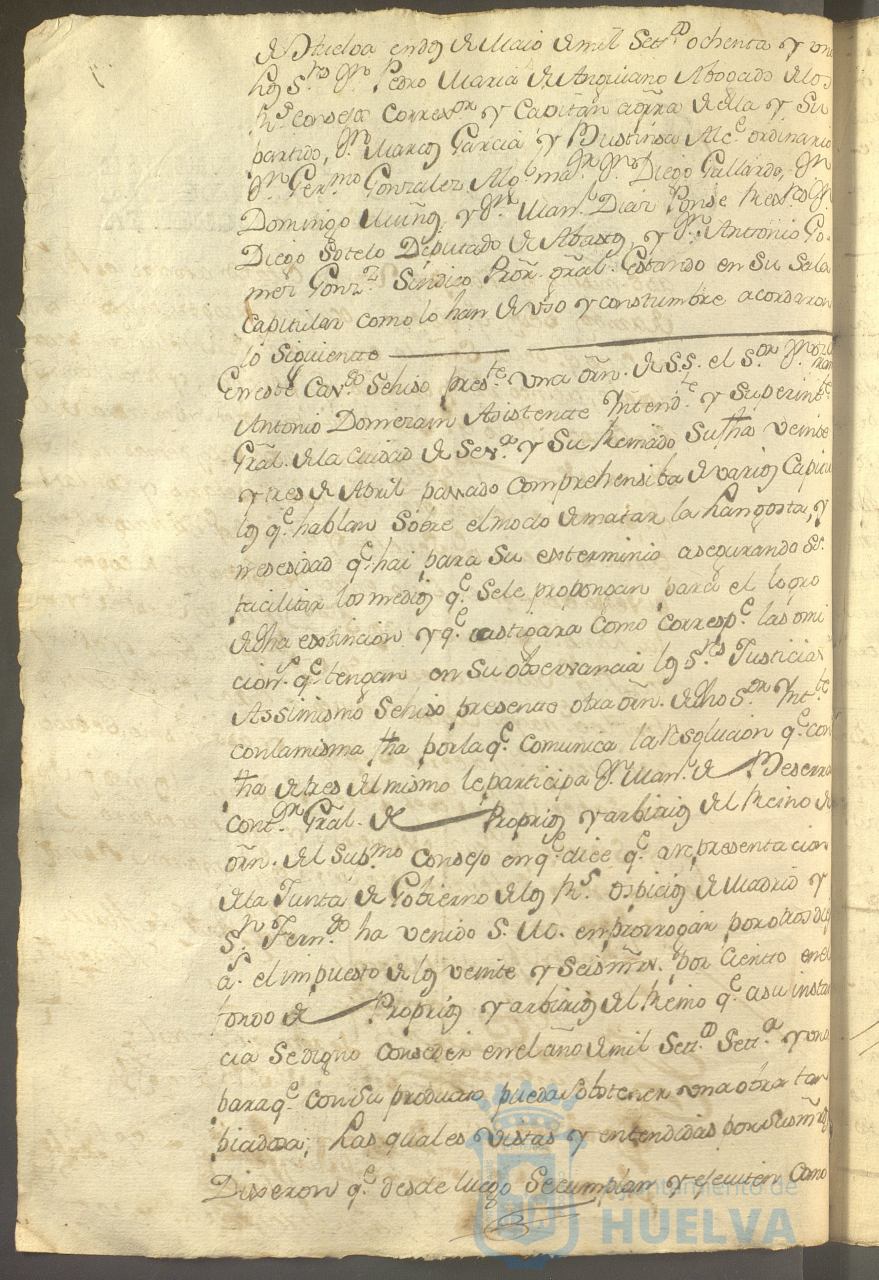 de Huelva en dos de Maio de mil Setecs ochenta y uno
los Sres Dn Pedro Maria de Anguiano Abogado de los
Rs consejos Correxor y Capitan aGrra de ella y Su
partido, Dn Marcos Garcia y Bustinsa Alce ordinario
Dn Germo Gonzalez Alg mar Dn Diego Gallardo, Dn
Domingo Muñoz y Dn Manl Diaz Ponse Rexres Dn
Diego Sotelo Deputado de Abastos y Dn Antonio Go
mez Gonzz Sindico Pror gral. Estando en Su Sala
capitular como lo han de vso y constumbre acordaron
lo Siguiente
En este Cavdo Sehiso preste una orn. de S.S. el Sor Dn
Antonio Domezain Asistente Yntendte y Superintte
Gral. de la ciudad de Seva y Su Reinado Su fha veinte
y tres de Abril pasado comprehensiba de varios Capitu
los qe hablan Sobre el modo de matar la Langosta, y
nesesidad qe hai para su exterminio asegurando Se
facilitar los medios qe Sele propongan para el logro
de dha extincion y qe castigara como correspe las omi
cions qe tengan en Su observancia los Sres Justicias
Assimismo Sehiso presente otra orn. de dho Sor Yntte
con la misma fha por la qe comunica la resolucion qe con
fha de tres del mismo le participa Dn Manl de Beserra
contor Gral. de Propios y arbitrios del Reino de
orn. del Supmo Consejo en qe dice qe a representacion
de la Junta de Gobierno de los Rs Ospicios de Madrid y
Sn Ferndo ha venido S. M. en prorrogar por otros dies
as. el impuesto de los veinte y Seis mrs. por ciento en el
fondo de Propios y arbitrios del Reino qe a su instan
cia Se digno conseder en el año de mil Setecs Seta y uno
para qe con Su producto pueda Sobstener una obra tan
piadosa; Las quales vistas y entendidas por Sus mrds
Dixeron qe desde luego Se cumplan y ejecuten como
Ayuntamiento de
HUELVA